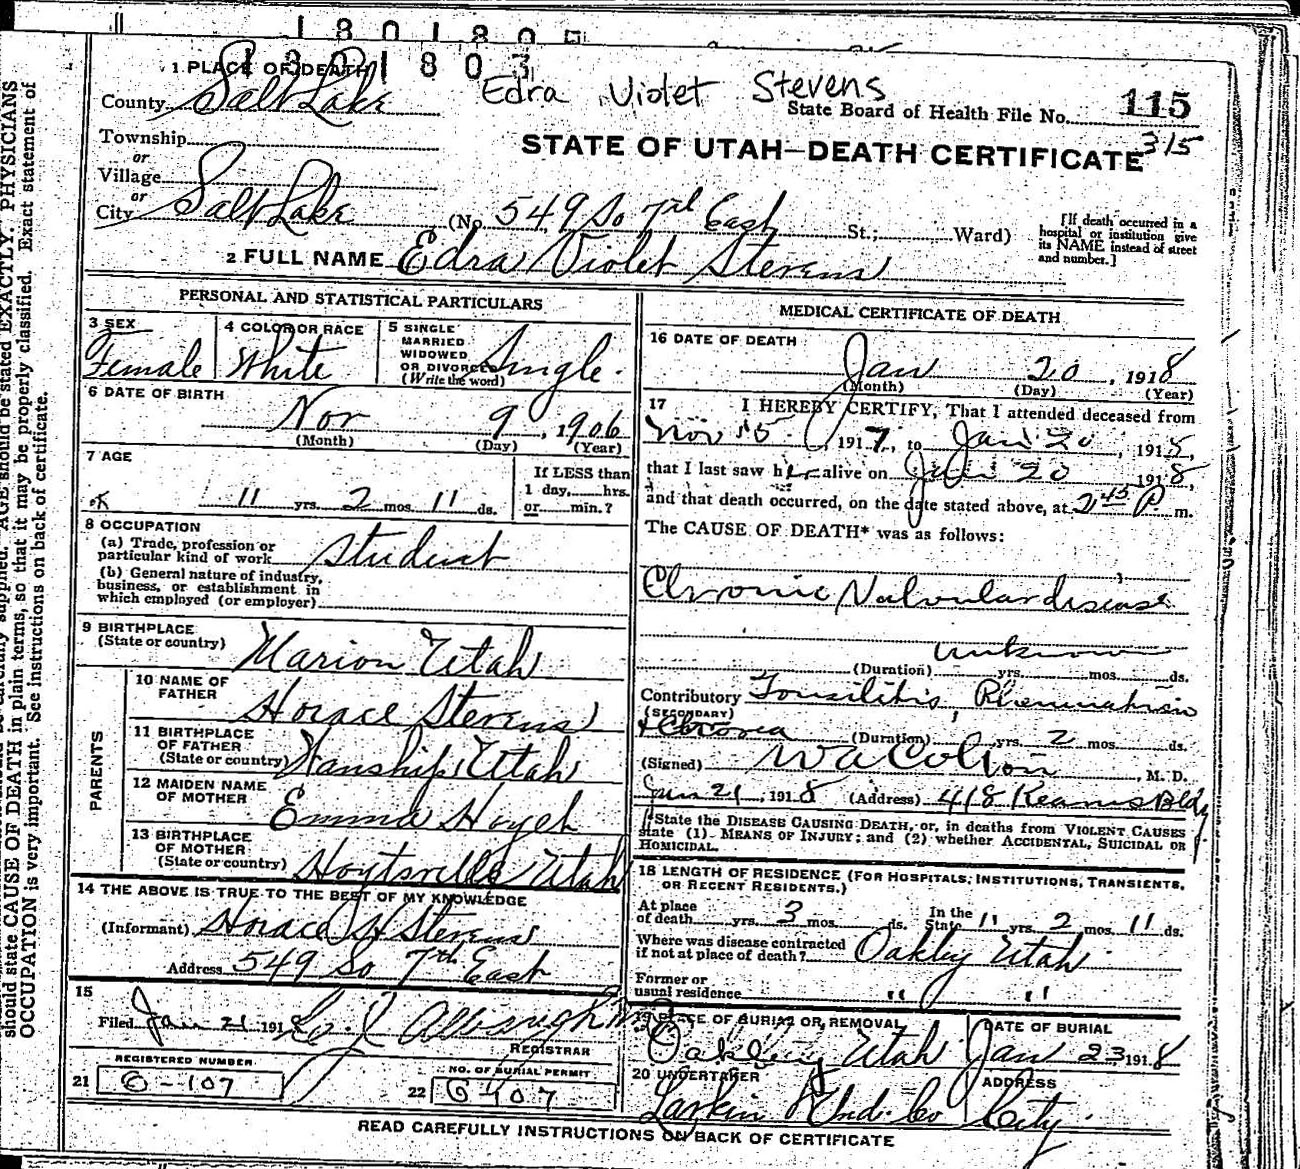 1301803
Edra Violet Stevens
1 PLACE OF DEATH
County Salt Lake
State Board of Health File No. 115
315
Township
or
Village
or
City Salt Lake
STATE OF UTAH—DEATH CERTIFICATE
(No. 549 So 7th East St.; Ward)
[If death occurred in a
hospital or institution give
its NAME instead of street
and number.]
2 FULL NAME Edra Violet Stevens
PERSONAL AND STATISTICAL PARTICULARS
3 SEX
Female
4 COLOR OR RACE
White
5 SINGLE
MARRIED
WIDOWED
OR DIVORCED
(Write the word)
Single.
6 DATE OF BIRTH
Nov 9, 1906
(Month) (Day) (Year)
7 AGE
11 yrs. 2 mos. 11 ds.
If LESS than
1 day, hrs.
or min.?
8 OCCUPATION
(a) Trade, profession or
particular kind of work Student
(b) General nature of industry,
business, or establishment in
which employed (or employer)
9 BIRTHPLACE
(State or country) Marion Utah
PARENTS
10 NAME OF
FATHER Horace Stevens
11 BIRTHPLACE
OF FATHER
(State or country) Wanship, Utah
12 MAIDEN NAME
OF MOTHER Emma
13 BIRTHPLACE
OF MOTHER
(State or country) Hoytsville Utah
14 THE ABOVE IS TRUE TO THE BEST OF MY KNOWLEDGE
(Informant) Horace H Stevens
Address 549 So 7th East
15
Filed Jan 21 191
REGISTRAR
REGISTERED NUMBER
21 6-107
NO. OF BURIAL PERMIT
22 6407
MEDICAL CERTIFICATE OF DEATH
16 DATE OF DEATH
Jan 20, 1918
(Month) (Day) (Year)
17 I HEREBY CERTIFY, That I attended deceased from
Nov 15, 1917, to Jan 20, 1918,
that I last saw her alive on Jan 20 1918,
and that death occurred, on the date stated above, at 2 45 P. m.
The CAUSE OF DEATH* was as follows:
Chronic Valvular disease
unknown
(Duration) yrs. mos. ds.
Contributory Tonsilitis, Rheumatism
(SECONDARY)
+ Chorea (Duration) yrs. 2 mos. ds.
(Signed) W A Colton, M. D.
Jan 21, 1918 (Address) 418 Kearns Bldg
*State the DISEASE CAUSING DEATH, or, in deaths from VIOLENT CAUSES
state (1) MEANS OF INJURY; and (2) whether ACCIDENTAL, SUICIDAL OR
HOMICIDAL.
18 LENGTH OF RESIDENCE (FOR HOSPITALS, INSTITUTIONS, TRANSIENTS,
OR RECENT RESIDENTS.)
At place
of death yrs. 3 mos. ds. In the
State 11 yrs. 2 mos. 11 ds.
Where was disease contracted
if not at place of death? Oakley Utah
Former or
usual residence " "
19 PLACE OF BURIAL OR REMOVAL
Oakley Utah
DATE OF BURIAL
Jan 23 1918
20 UNDERTAKER
Larkin Und. Co
ADDRESS
City.
READ CAREFULLY INSTRUCTIONS ON BACK OF CERTIFICATE
AGE should be stated EXACTLY. PHYSICIANS
should state CAUSE OF DEATH in plain terms, so that it may be properly classified. Exact statement of
OCCUPATION is very important. See instructions on back of certificate.